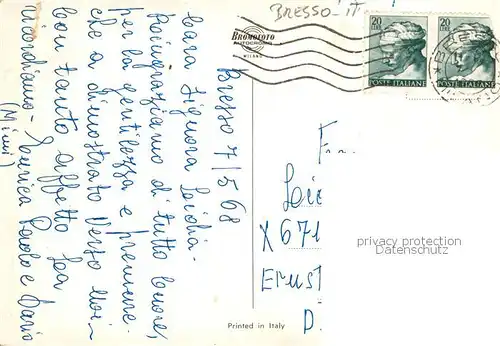 BRESSO - IT
BROMOFOTO
AUTOCROMO
MILANO
20
LIRE
POSTE ITALIANE
20
LIRE
POSTE ITALIANE
Bresso 7/5 68
Cara Signora
Ringraziamo di tutto cuore,
per la gentilezza e premure
che a dimostrato verso noi -
Con tanto affetto La
ricordiamo - Enrica Paolo e Dario
(Mimi)
X 671
Ernst
D.
privacy protection
Datenschutz
Printed in Italy